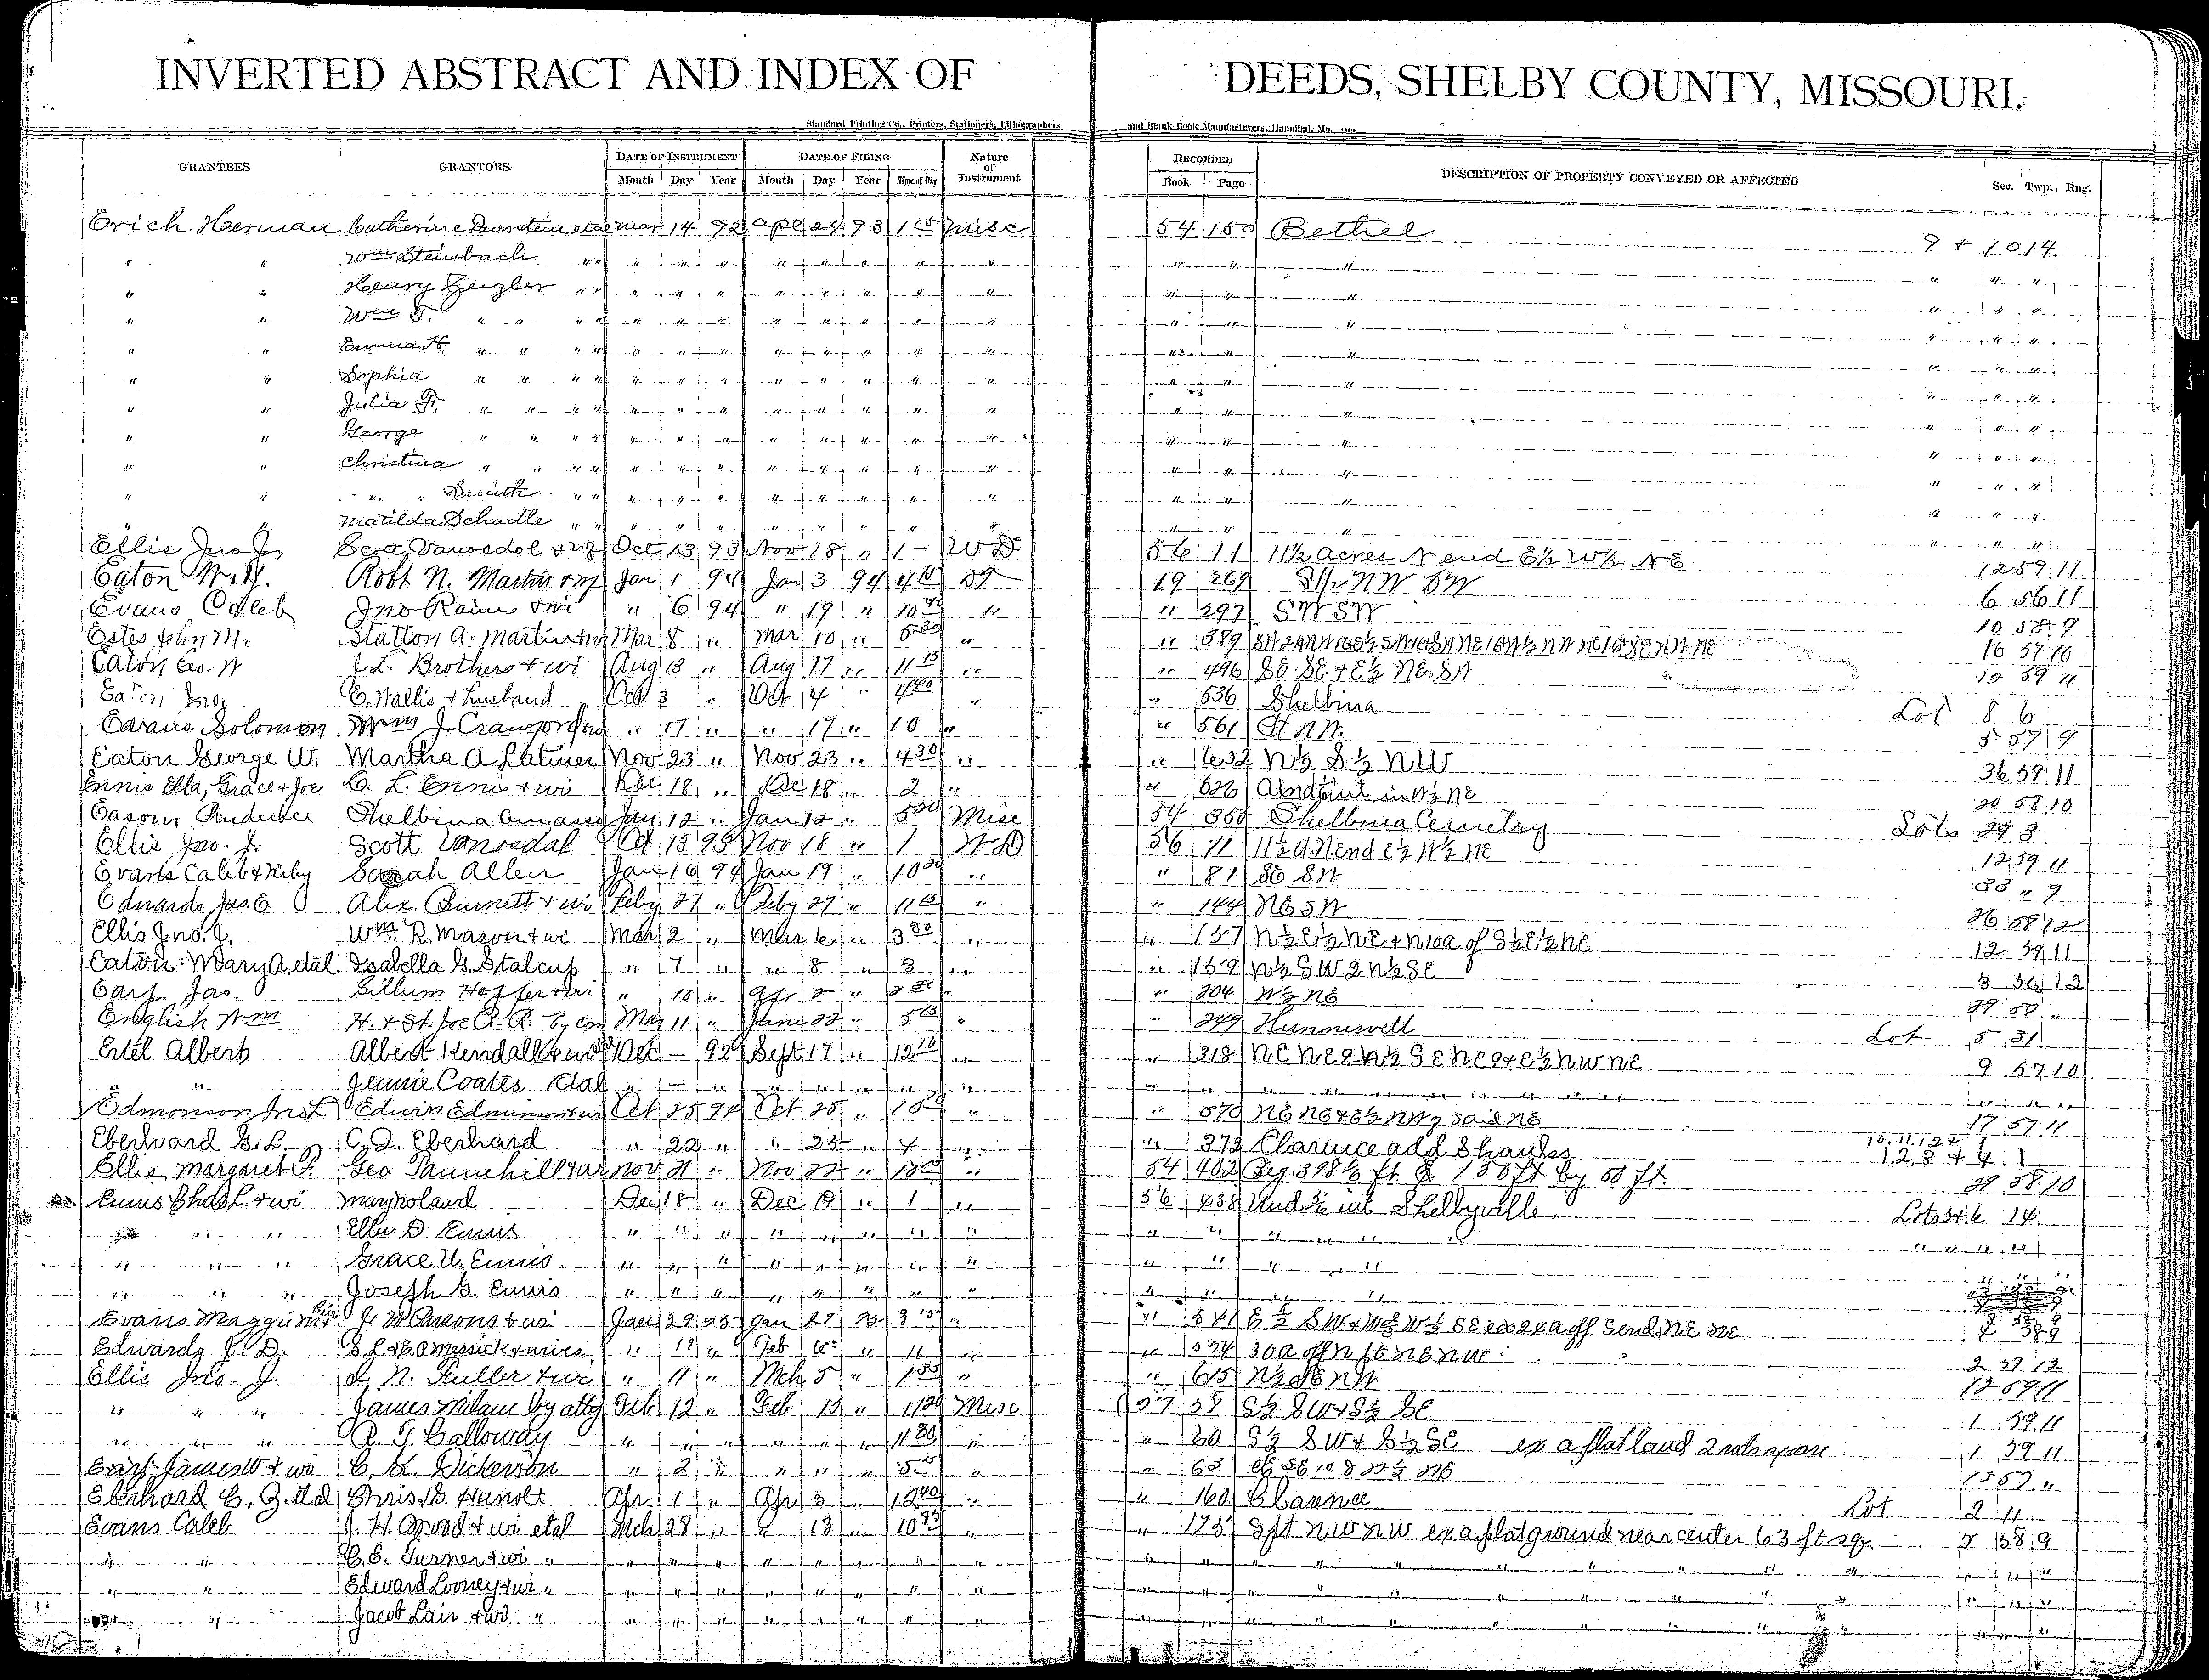 INVERTED ABSTRACT AND INDEX OF DEEDS, SHELBY COUNTY, MISSOURI.
Standard Printing Co., Printers, Stationers, Lithographers and Blank Book Manufacturers, Hannibal, Mo.
GRANTEES GRANTORS DATE OF INSTRUMENT DATE OF FILING Nature of Instrument RECORDED DESCRIPTION OF PROPERTY CONVEYED OR AFFECTED Sec. Twp. Rng.
Month Day Year Month Day Year Time of Day Book Page
Erich Herman Catherine etal Mar 14 92 Apl 24 93 1 15 Misc 54 150 Bethel 9 + 10 14
" " Wm Steinbach " " " " " " " " " " " " " " " "
" " Henry Zeigler " " " " " " " " " " " " " " " "
" " Wm F. " " " " " " " " " " " " " " " " " "
" " Emma H. " " " " " " " " " " " " " " " " " "
" " Sophia " " " " " " " " " " " " " " " " " "
" " Julia F. " " " " " " " " " " " " " " " " " "
" " George " " " " " " " " " " " " " " " " " "
" " Christina " " " " " " " " " " " " " " " " " "
" " " " Smith " " " " " " " " " " " " " " " "
" " Matilda Schadle " " " " " " " " " " " " " " " "
Ellis Jno J. Scott Vanosdol + wf Oct 13 93 Nov 18 " 1 - W D 56 11 11½ acres N end E½ W½ NE 12 59 11
Eaton W. Robt N. Martin + wf Jan 1 94 Jan 3 94 4 19 269 S½ NW SW 6 56 11
Evans Caleb Jno Rains + wi " 6 94 " 19 " 10 40 " " 297 SW SW 10 58 9
Estes John M. Statton A. Martin + wi Mar 8 " Mar 10 " 5 30 " " 389 16 57 10
Eaton Geo. W J. L. Brothers + wi Aug 13 " Aug 17 " 11 15 " " 496 SE SE + E½ NE SW 12 59 11
Eaton Jno. E. Wallis + husband Oct 3 " Oct 4 " 4 40 " " 536 Shelbina Lot 8 6
Evans Solomon Wm J. Crawford + wi " 17 " " 17 " 10 " " 561 5 57 9
Eaton George W. Martha A Latimer Nov 23 " Nov 23 " 4 30 " " 632 N½ S½ NW 36 59 11
Ennis Ella, Grace + Joe C. L. Ennis + wi Dec 18 " Dec 18 " 2 " " 626 Und int in W½ NE 20 58 10
Eason Shelbina Jan 12 " Jan 12 " 5 30 Misc 54 350 Shelbina Cemetry Lots 29 3
Ellis Jno. J. Scott Vanosdal Oct 13 93 Nov 18 " 1 W D 56 11 11½ a N end E½ W½ NE 12 59 11
Evans Caleb + Kiby Sarah Allen Jan 16 94 Jan 19 " 10 30 " " 81 SE SW 33 " 9
Edwards Jas. E Alex. Burnett + wi Feby 27 " Feby 27 " 11 15 " " 144 NE SW 26 58 12
Ellis Jno. J. Wm. R. Mason + wi Mar 2 " Mar 6 " 3 30 " " 157 N½ E½ NE + N 10a of S½ E½ NE 12 59 11
Eaton Mary A. etal Isabella G. Stalcup " 7 " " 8 " 3 " " 159 N½ SW & N½ SE 3 56 12
Earp Jas. Gillum + wi " 10 " Apr 2 " " " 204 W½ NE 29 58 "
English Wm H. + St Joe R. R. by com May 11 " June 22 " 5 15 " " 249 Hunnewell Lot 5 31
Ertel Albert Albert Kendall + wi etal Oct - 92 Sept 17 " 12 10 " " 318 NE NE & N½ SE NE & E½ NW NE 9 57 10
" " Jennie Coates etal " - " " " " " " " " " " " " " "
Edmonson Jno L Edwin Edmonson + wi Oct 25 94 Oct 25 " 10 " " 370 NE NE + E½ NW of said NE 17 57 11
Eberhard G. L. C. Q. Eberhard " 22 " " 25 " 4 " " 372 Clarence add Shanks 10, 11, 12 + 1, 2, 3 + 4 1
Ellis Margaret F. Geo Tannehill + wi Nov 21 " Nov 22 " 10 " 54 402 Beg 398½ ft E 150 ft by 50 ft. 29 58 10
Ennis Chas L. + wi Mary Noland Dec 18 " Dec 19 " 1 " 56 438 Und int Shelbyville Lots 5 + 6 14
" " " Ella D Ennis " " " " " " " " " " " " " " " " "
" " " Grace U. Ennis " " " " " " " " " " " " " "
" " " Joseph G. Ennis " " " " " " " " " " "
Evans Maggie J. W Parsons + wi Jan 29 95 Jan 29 95 3 " " 541 E½ SW + W½ W½ SE ex 2 4 a off S end NE SE 4 58 9
Edwards J. D. S. L. + E. O Messick + wives " 12 " Feb " 11 " " 574 30 a off N NE NW 2 57 12
Ellis Jno. J. L. N. Fuller + wi " 11 " Mch 5 " 1 " " 615 N½ SE NW 12 59 11
" " " James Milam by atty Feb 12 " Feb 15 " 11 20 Misc 57 58 S½ SW + S½ SE 1 59 11
" " " R. G. Calloway " " " " " " 11 30 " " 60 S½ SW + S½ SE ex a plat land 2 rods square 1 59 11
Earp James W + wi C. K. Dickerson " 2 " " " " 5 " " 63 15 57 "
Eberhard C. Q. etal Chris G. Hunolt Apr 1 " Apr 3 " 12 40 " " 160 Clarence Lot 2 11
Evans Caleb J. H. Wood + wi etal Mch 28 " " 13 " 10 " " 175 S pt NW NW ex a plat ground near center 63 ft sq 5 58 9
" " C. E. Turner + wi " " " " " " " " " " " " " " " " " " " "
" " Edward Looney + wi " " " " " " " " " " " " " " " " " " " "
" " Jacob Lair + wi " " " " " " " " " " " " " " " " " " " "